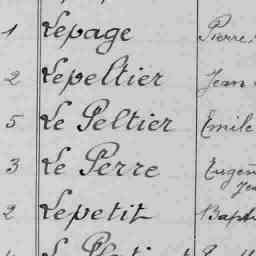 1 Lepage Pierre
2 Lepeltier Jean
5 Le Peltier Emile
3 Le Perre Eugén
2 Lepetit Bapt